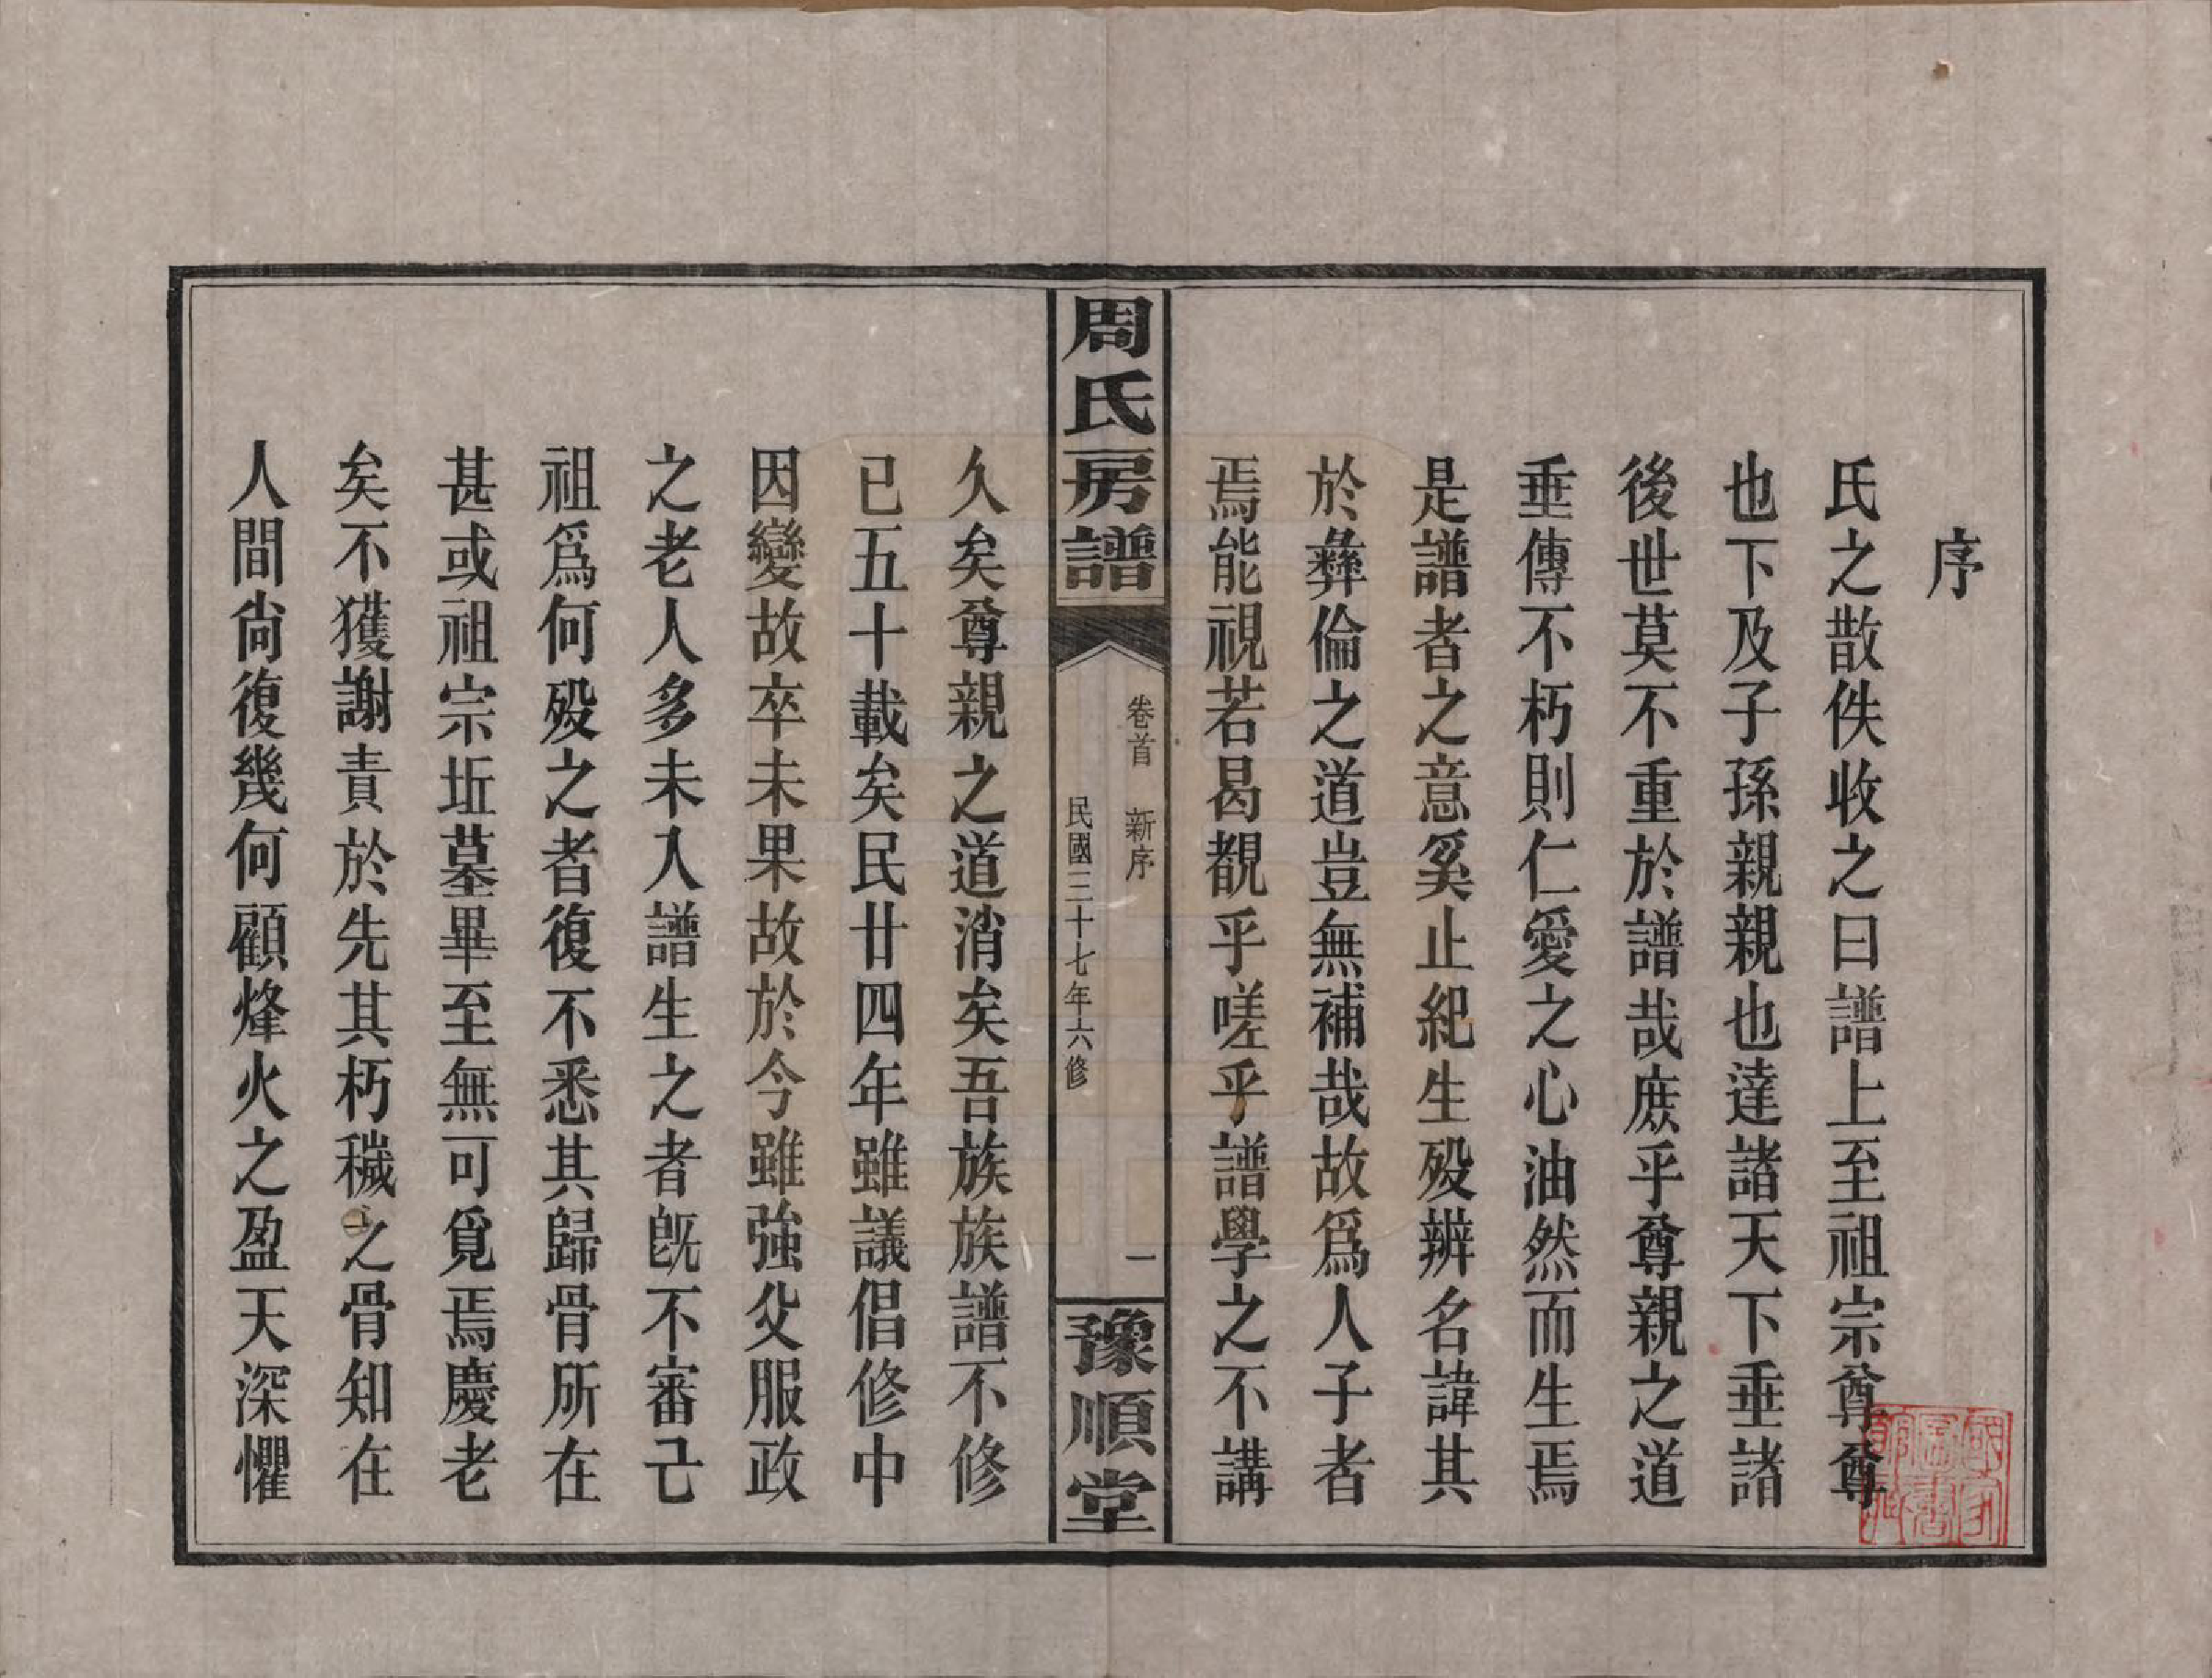 序
氏之散佚收之曰譜上至祖宗尊尊
也下及子孫親親也達諸天下垂諸
後世莫不重於譜哉庶乎尊親之道
垂傳不朽則仁愛之心油然而生焉
是譜者之意奚止紀生歿辨名諱其
於彝倫之道豈無補哉故爲人子者
焉能視若曷覩乎嗟乎譜學之不講
周氏房譜
卷首 新序
民國三十七年六修
一
豫順堂
久矣尊親之道消矣吾族族譜不修
已五十載矣民廿四年雖議倡修中
因變故卒未果故於今雖強父服政
之老人多未入譜生之者旣不審己
祖爲何歿之者復不悉其歸骨所在
甚或祖宗坵墓畢至無可覓焉慶老
矣不獲謝責於先其朽穢之骨知在
人間尙復幾何顧烽火之盈天深懼
國家圖書館藏